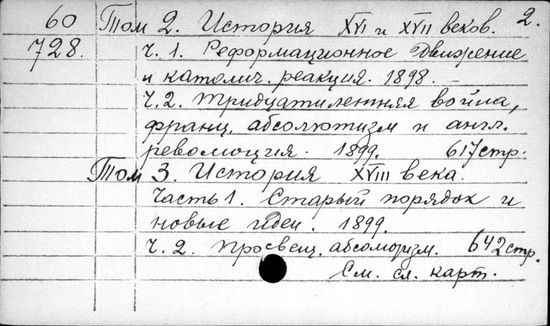 60 Том 2. История XVI и XVII веков. 2.
728. Ч. 1. Реформационное движение
и католич. реакция. 1898.
Ч. 2. Тридцатилетняя война,
франц. абсолютизм и англ.
революция. 1899. 617 стр.
Том 3. История XVIII века.
Часть 1. Старый порядок и
новые идеи. 1899.
Ч. 2. Просвещ. абсолютизм. 642 стр.
См. сл. карт.